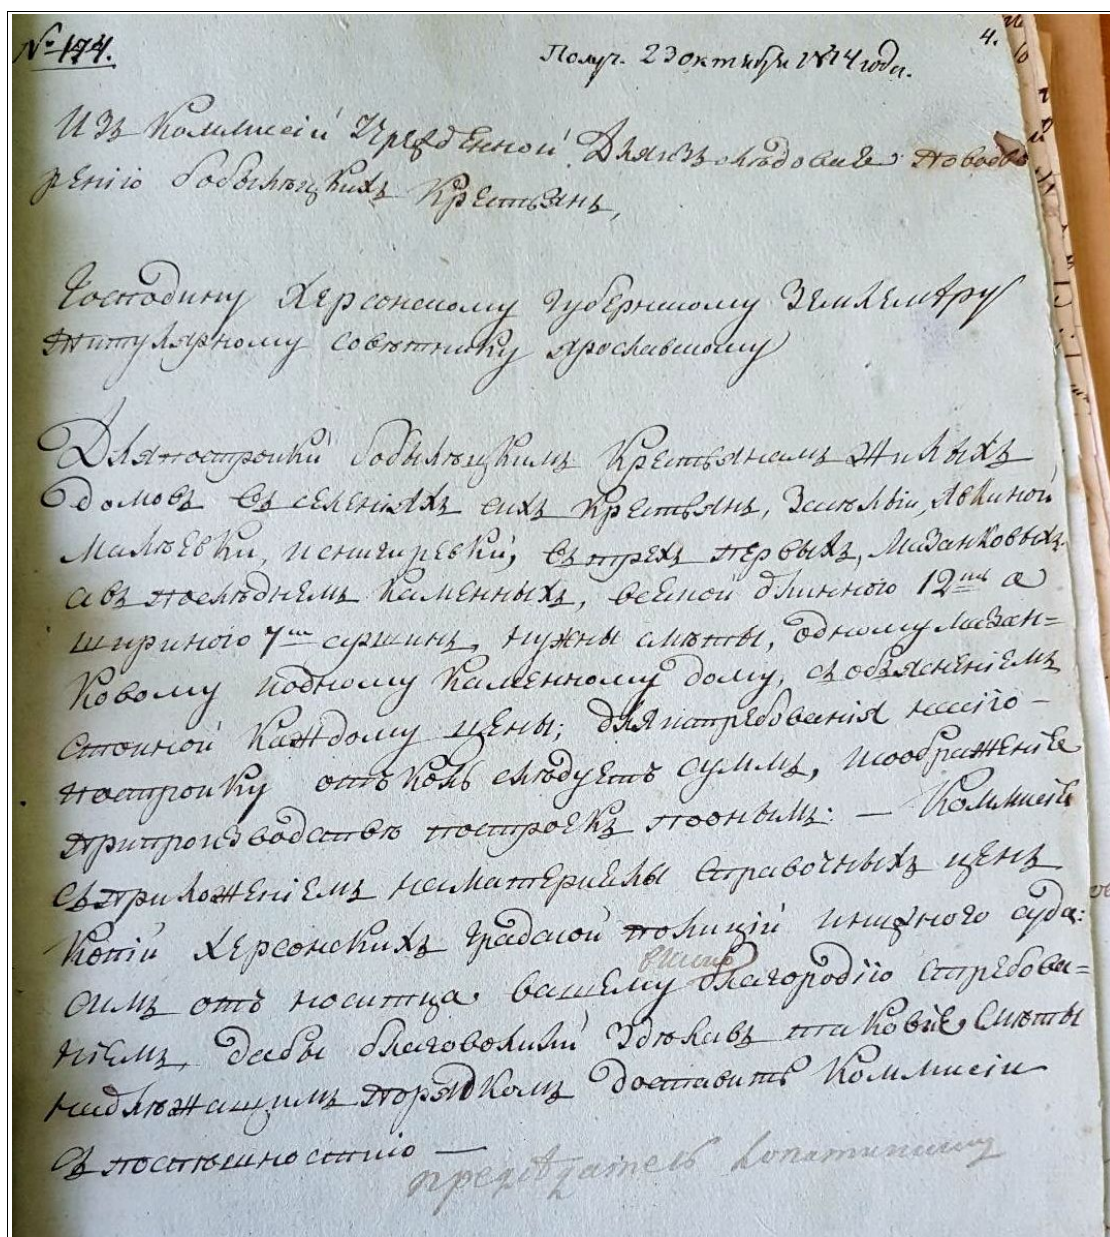 № 174.
Получ. 23 октября 1814 года.
4.
Изъ Коммисіи Учрежденной для изследованія поводво
ренію бобылецкихъ Крестьянъ,
Господину Херсонскому Губернскому Землемѣру
Титулярному совѣтнику Ярославскому
Для постройки бобылецкимъ Крестьянамъ жилыхъ
домовъ въ селеніяхъ сихъ Крестьянъ, Засѣльи, Явкиной
Малѣевки, и Снигиревки, въ трехъ первыхъ, Мазанковыхъ
а въ последнемъ Каменныхъ, всякой длинною 12ть а
шириною 7ми аршинъ, нужны смѣты, одному мазан=
ковому и одному Каменному дому, съ объясненіемъ
стоимой Каждому цены; для истребованія на сію
постройку отъ коль слѣдуетъ суммъ, и соображеніе
при производствѣ построекъ по онымъ: — Коммисія
съ приложеніемъ на матеріалы справочныхъ ценъ
Копій Херсонскихъ Градской полиціи и нижнего суда:
симъ относится вашему благородію с требова=
ніемъ, дабы благоволили Здѣлавъ таковые Смѣты
надлѣжащимъ порядкомъ доставить Коммисіи
съ поспѣшностію —
председатель Лопатинский